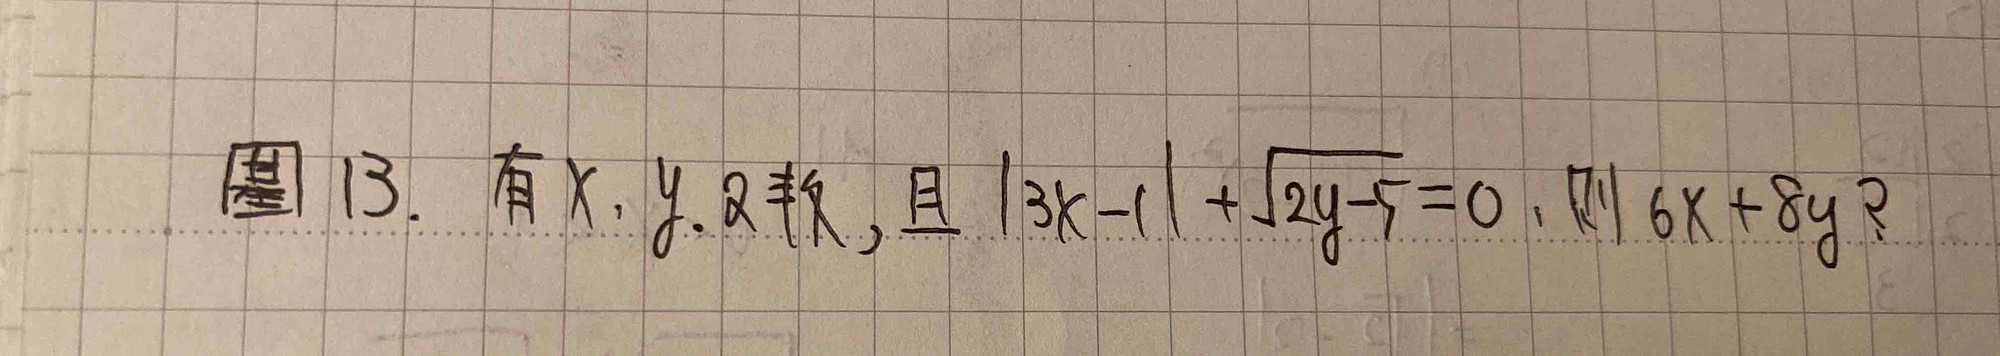 13. 有 x, y. 2 数, 且 |3x-1| + √2y-5 = 0, 则 6x+8y?